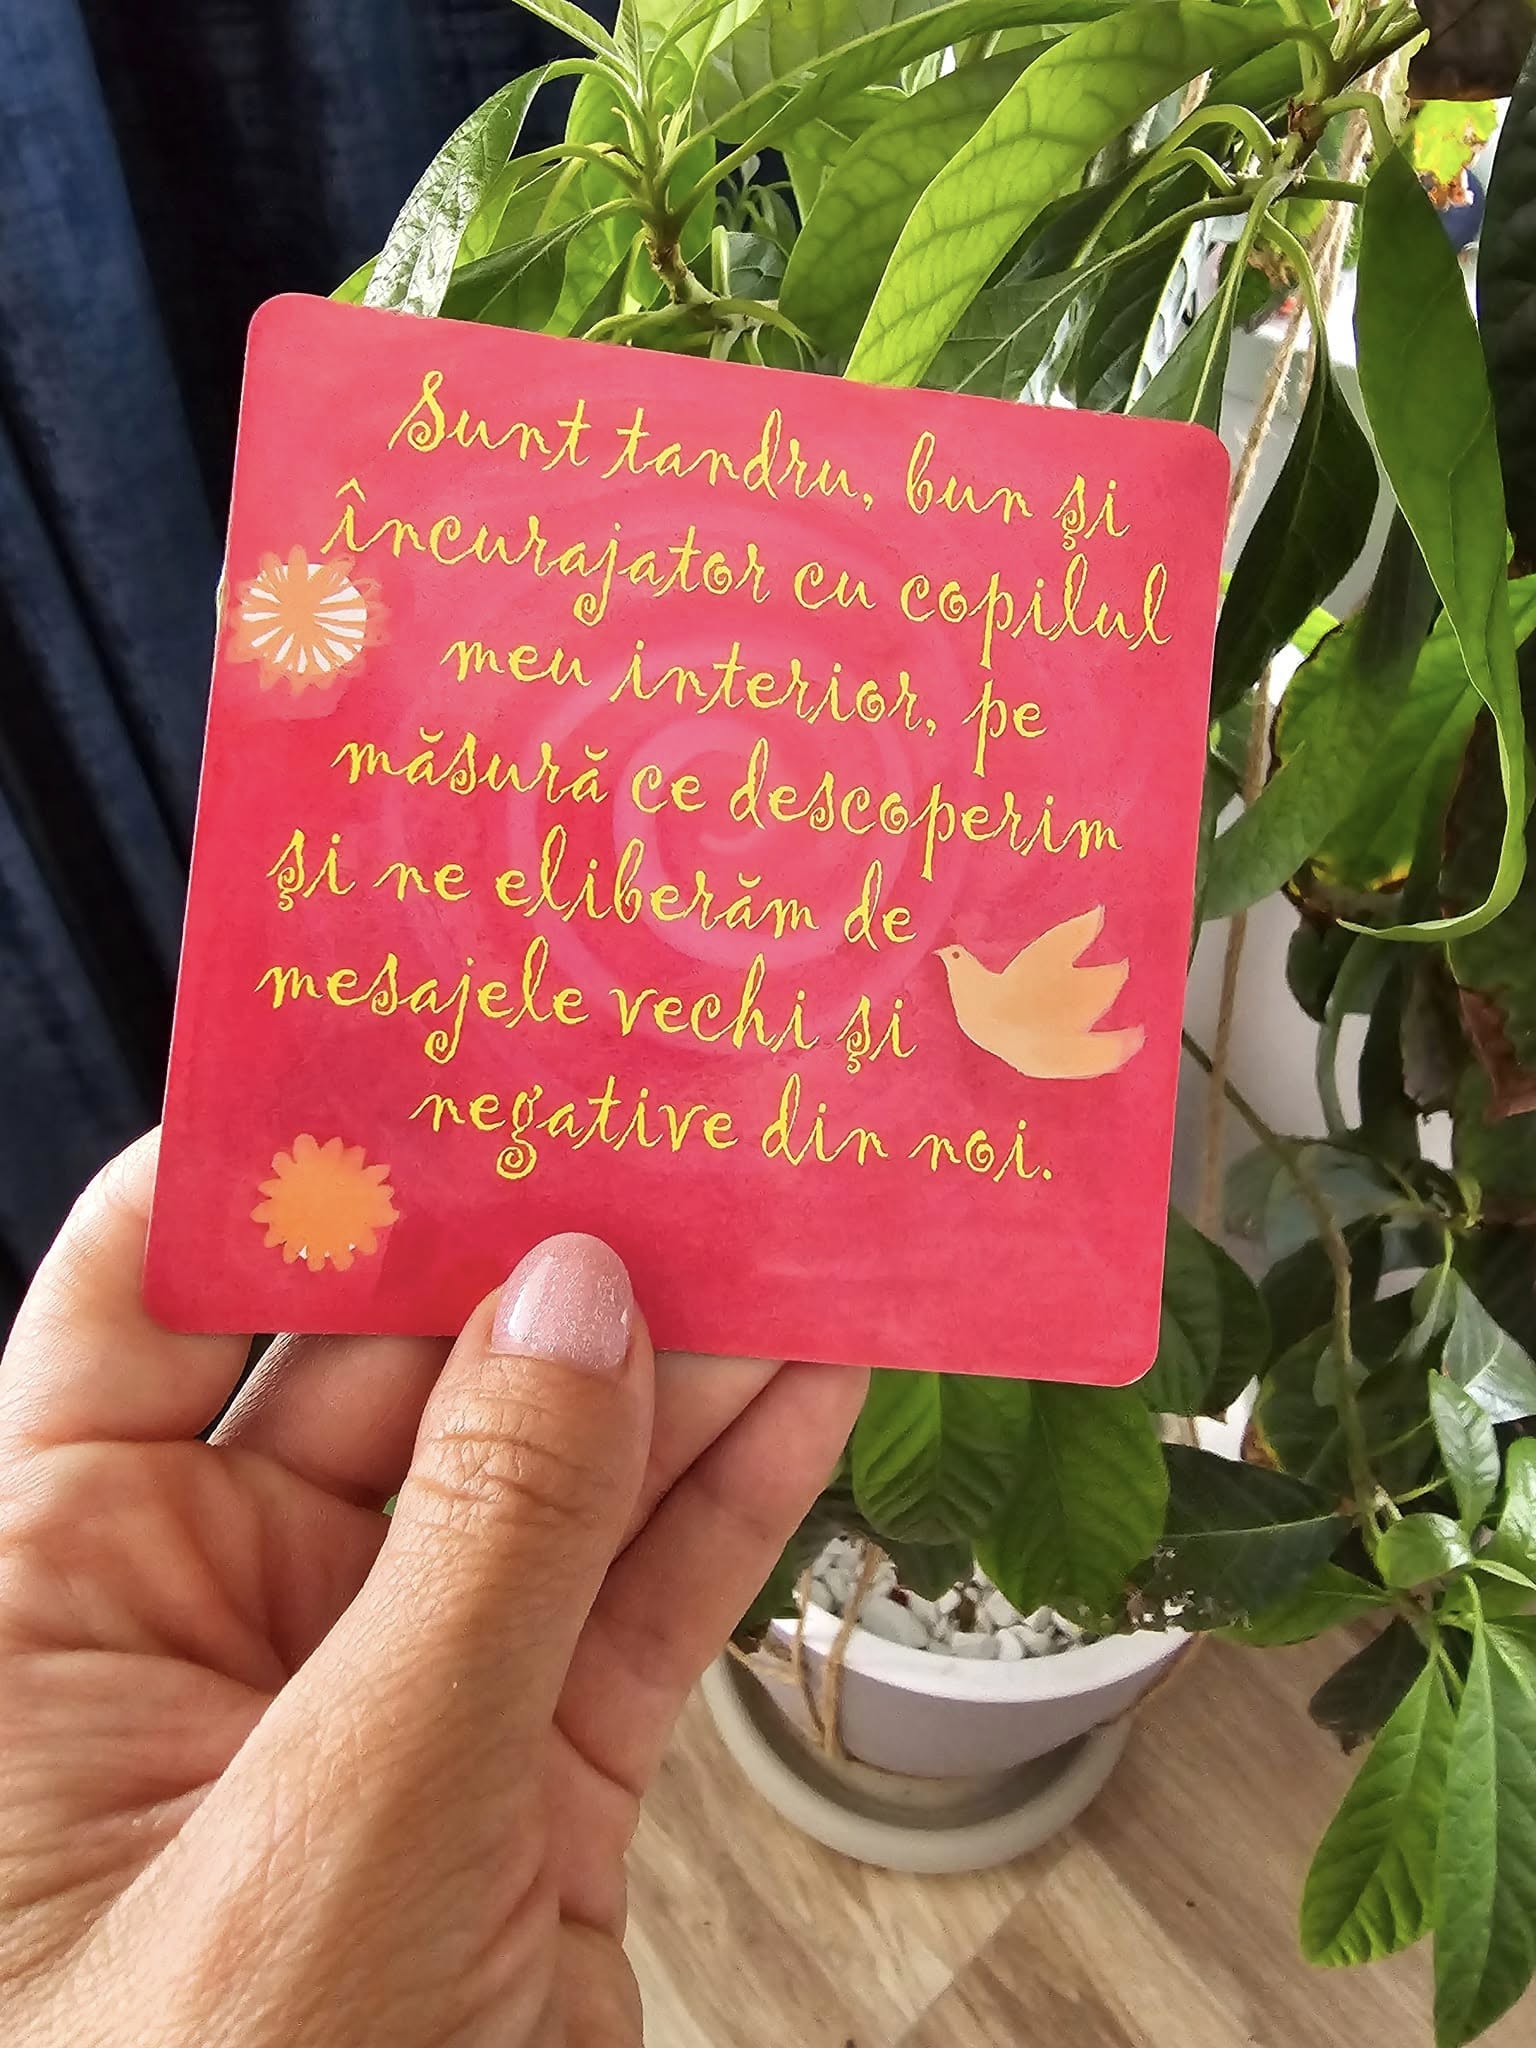 Sunt tandru, bun şi
încurajator cu copilul
meu interior, pe
măsură ce descoperim
şi ne eliberăm de
mesajele vechi şi
negative din noi.